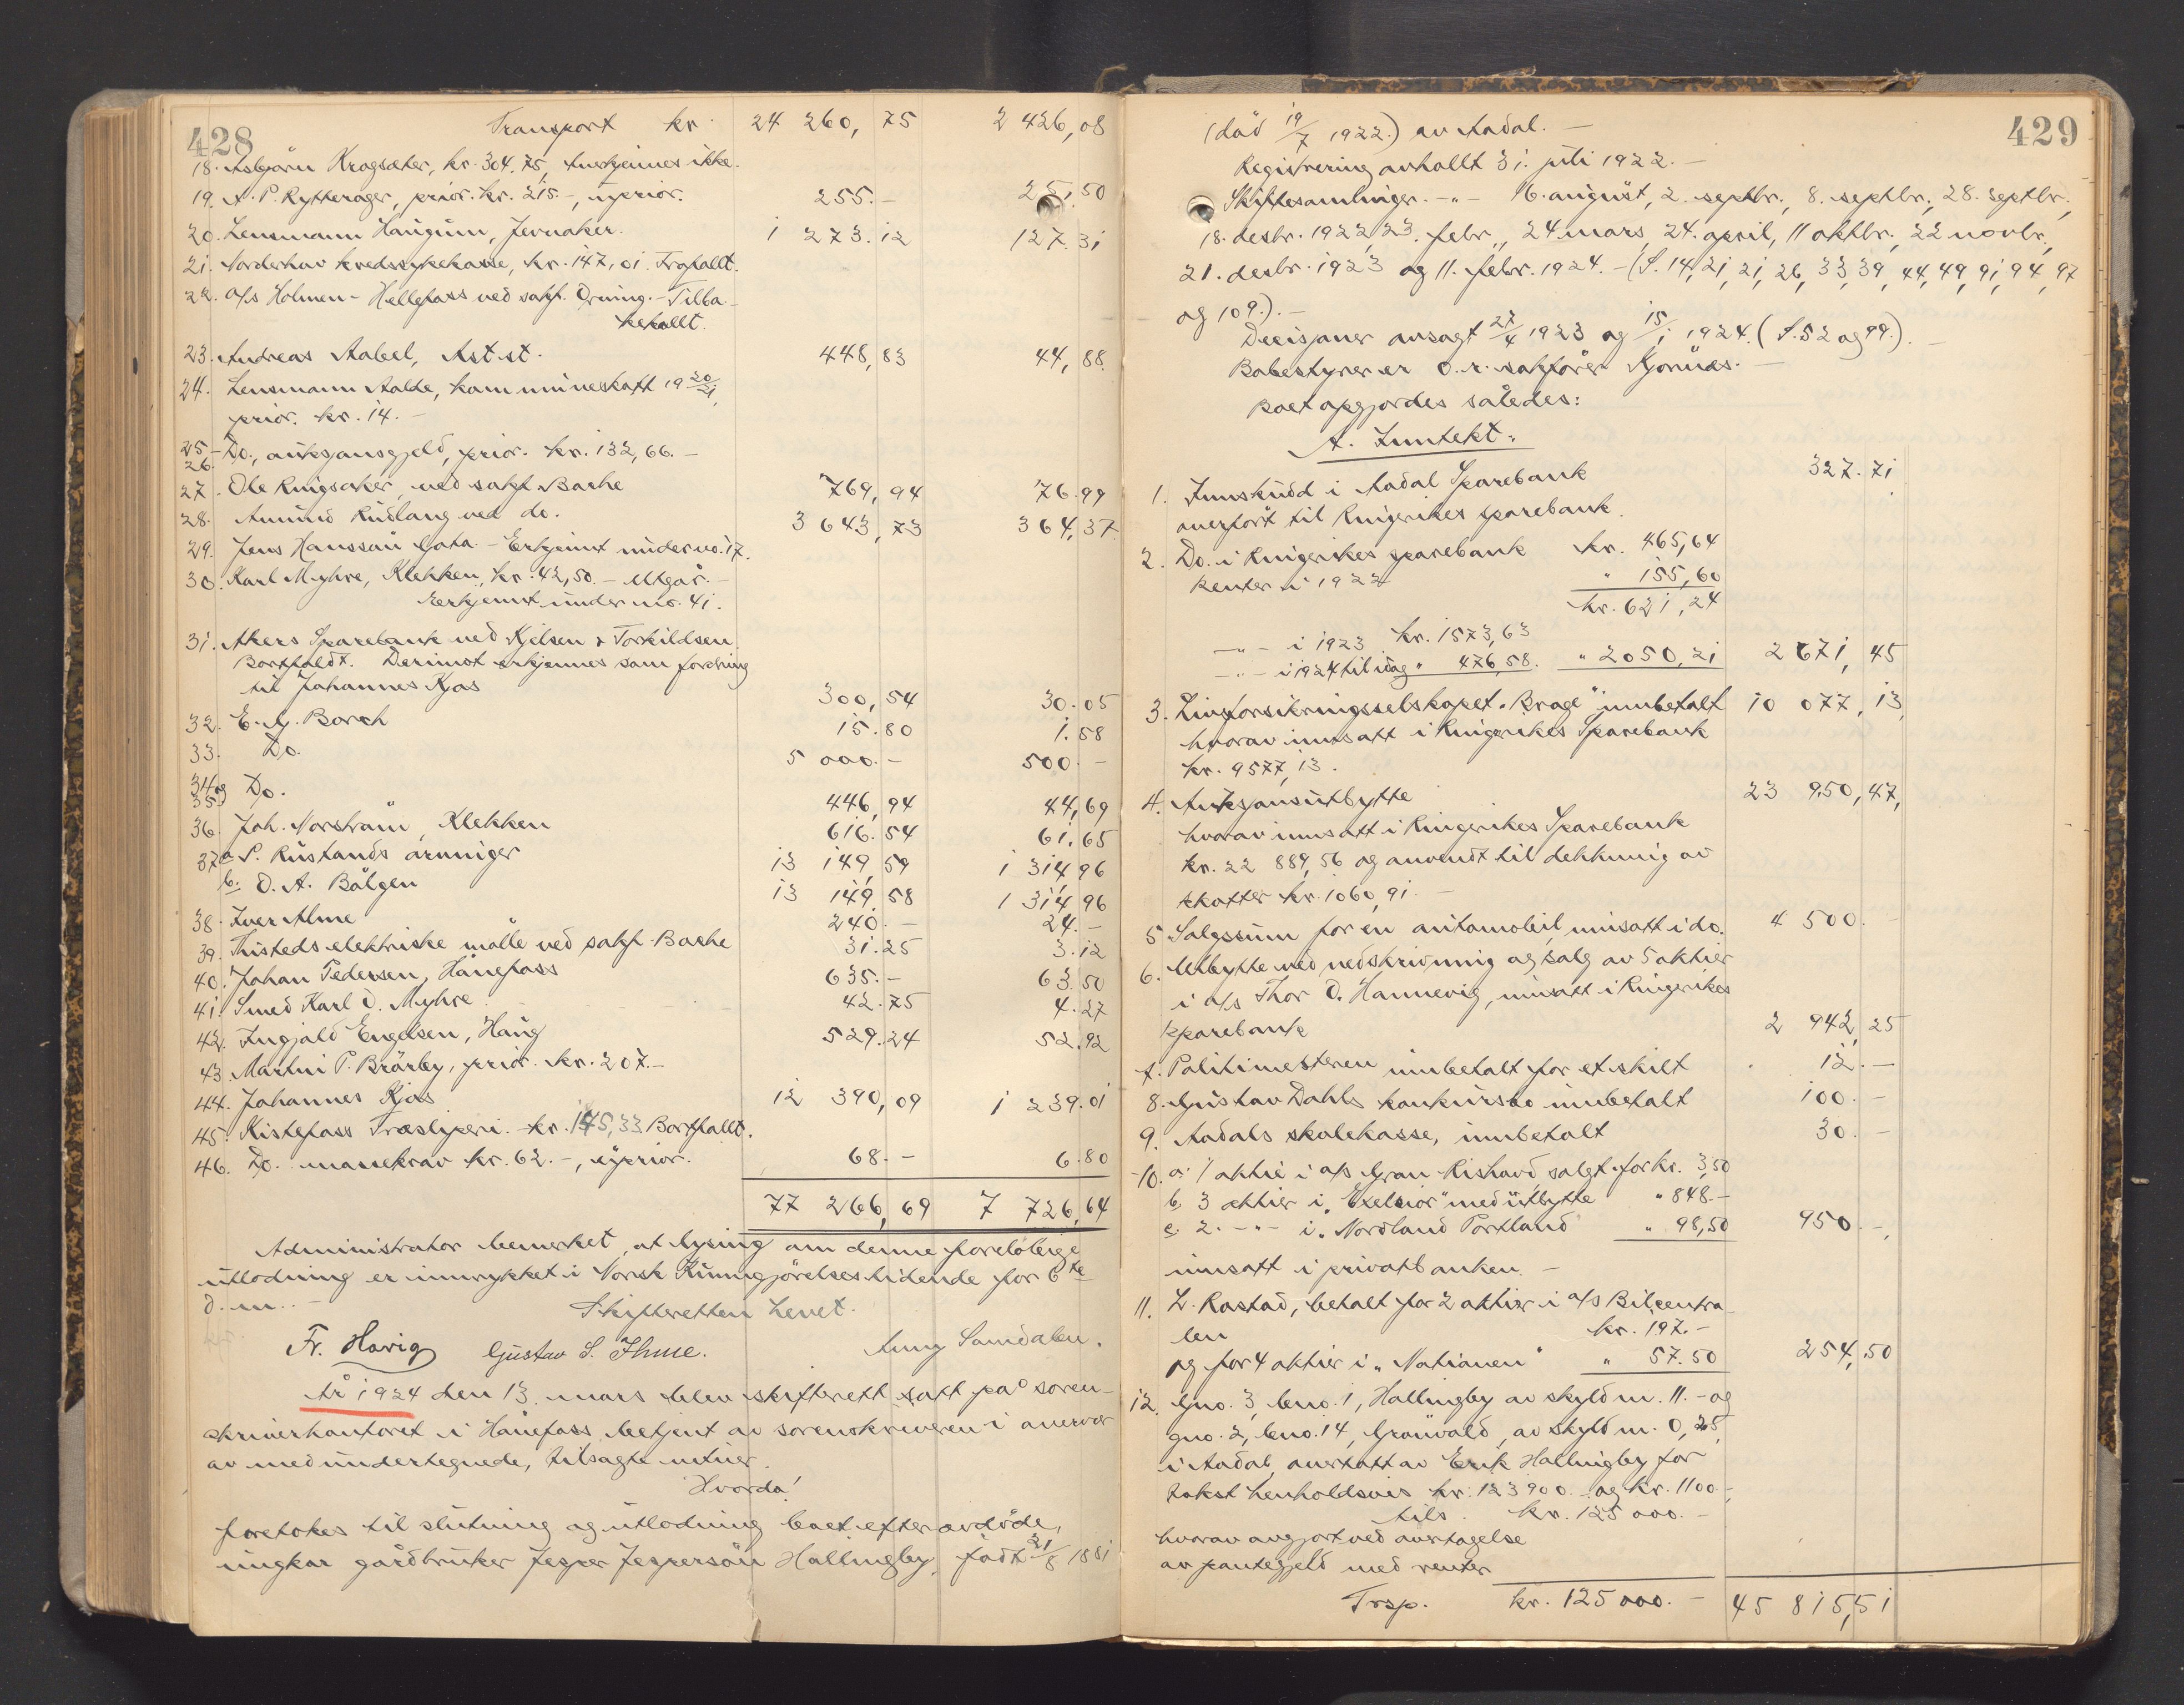 428
Transport kr. 24 260,75 2 426,08
18. Asbjørn Kragsæter, kr. 304.75, Anerkjennes ikke.
19. A. P. Rytterager, prior. kr. 215.-, uprior. 255.- 25,50
20. Lensmann Haugum, Jevnaker. 1 273.12 127.31
21. Norderhov kredssykekasse, kr. 147,01. Frafallt.
22. A/s Holmen-Hellefoss ved sakf. Orning.- Tilba-
kekallt.
23. Andreas Aabel, Ast st. 448,83 44,88
24. Lensmann Aalde, kommuneskatt 1920/21,
prior. kr. 14.-
25-26. Do., auksjonsgjeld, prior. kr. 132,66.-
27. Ole Ringsaker, ved sakf. Bache 769,94 76.99
28. Amund Rudlang ved do. 3 643,73 364,37
29. Jens Hanssøn Gata - Erkjennt under no. 17.
30. Karl Myhre, Klekken, kr. 42,50.- Utgår.-
Erkjennt under no. 41.
31. Akers Sparebank ved Kjelsen & Torkildsen
Bortfaldt. Derimot erkjennes som fordring
til Johannes Kjos 300,54 30.05
32. E. G. Borch 15.80 1.58
33. Do. 5 000.- 500.-
34 og 35. Do. 446,94 44,69
36. Joh. Norstrøm, Klekken 616.54 61.65
37 a. P. Rustands arvinger 13 149,59 1 314,96
b. O. A. Bålgen 13 149,58 1 314,96
38. Iver Alme 240.- 24.-
39. Thisteds elektriske mølle ved sakf. Bache 31.25 3.12
40. Johan Pedersen, Hønefoss 635.- 63.50
41. Smed Karl O. Myhre 42.75 4.27
42. Ingjald Engelsen, Haug 529.24 52.92
43. Martin P. Brørby, prior. kr. 207.-
44. Johannes Kjos 12 390,09 1 239.01
45. Kistefoss Træsliperi. kr. 145,33. Bortfallt.
46. Do. massekrav kr. 62.-, uprior. 68.- 6.80
77 266,69 7 726,64
Administrator bemerket, at lysing om denne foreløbige
utlodning er innrykket i Norsk Kunngjørelsestidende for 6te
d. m..-
Skifteretten hevet.
Fr. Havig Gustav S. Ihme. Amy Samdalen.
År 1924 den 13. mars blev skifterett satt på soren-
skriverkontoret i Hønefoss betjent av sorenskriveren i overvær
av medundertegnede, tilsagte vitner.
Hvorda!
foretokes til slutning og utlodning boet efter avdøde,
ungkar gårdbruker Jesper Jespersøn Hallingby, født 21/8 1881
429
(død 19/7 1922.) av Aadal.-
Registrering avhollt 31. juli 1922.-
Skiftesamlinger -"- 16. august, 2. septbr., 8. septbr., 28. septbr.,
18. desbr. 1922, 23. febr., 24 mars, 24. april, 11 oktbr., 22 novbr.,
21. desbr. 1923 og 11. febr. 1924.- (S. 14, 21, 21, 26, 33, 39, 44, 49, 91, 94, 97
og 109.).-
Decisjoner avsagt 27/4 1923 og 15/1 1924. (S. 52 og 99.).-
Bobestyrer er o.r.sakfører Kjonæs.-
Boet opgjordes således:
A. Inntekt:
1. Innskudd i Aadal Sparebank 327.71
overført til Ringerikes sparebank.
2. Do. i Ringerikes sparebank kr. 465,64
Renter i 1922 " 155,60
kr. 621,24
-"- i 1923 kr. 1573,63
-"- i 1924 til idag " 476,58. " 2050,21 2 671,45
3. Livsforsikringsselskapet "Brage" innbetalt 10 077,13
hvorav innsatt i Ringerikes Sparebank
kr. 9577,13.
4. Auksjonsutbytte 23 950,47
hvorav innsatt i Ringerikes Sparebank
kr. 22 889,56 og anvendt til dekkning av
skatter kr. 1060,91.-
5. Salgssum for en automobil, innsatt i do. 4 500.-
6. Utbytte ved nedskrivning og salg av 5 aktier
i a/s Thor O. Hannevig, innsatt i Ringerikes
sparebank 2 942,25
7. Politimesteren innbetalt for et skilt 12.-
8. Gustav Dahls konkursbo innbetalt 100.-
9. Aadals skolekasse, innbetalt 30.-
10. a. 1 aktie i a/s Gran Rishavd solgt for kr. 3,50
b. 3 aktier i "Exelsior" med utbytte " 848.-
c. 2 -"- i "Nordland Portland " 98,50 950.-
innsatt i privatbanken.-
11. L. Rastad, betalt for 2 aktier i a/s Bilcentra-
len kr. 197.-
og for 4 aktier i "Nationen" " 57.50 254,50
12. Gno. 3, bno. 1, Hallingby av skyld m. 11.- og
gno. 2, bno. 14, Grønvold, av skyld m. 0,25,
i Aadal, overtatt av Erik Hallingby for
takst henholdsvis kr. 123 900.- og kr. 1100.-,
tils. kr. 125 000.-
hvorav avgjort ved overtagelse
av pantegjeld med renter
Trsp. kr. 125 000.- 45 815,51